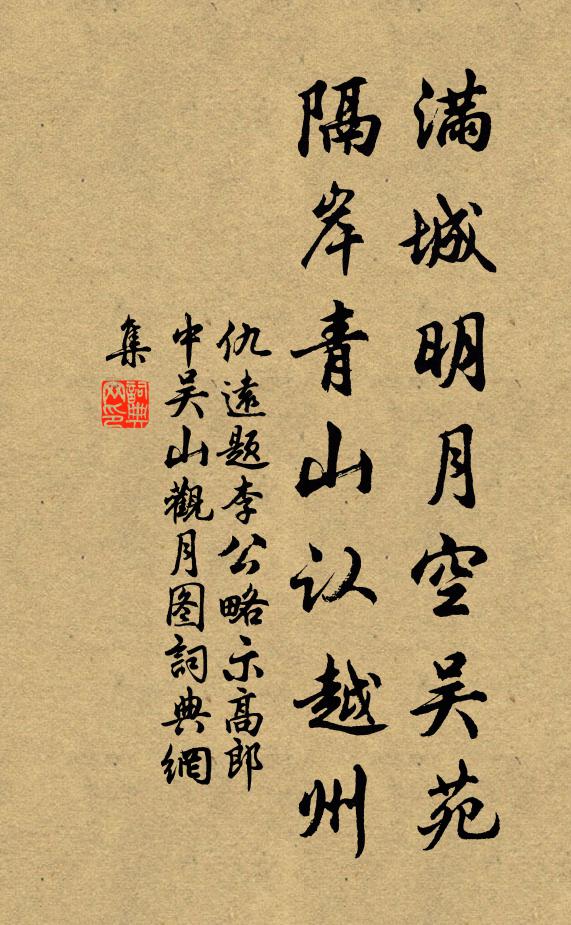 满城明月空吴苑
隔岸青山认越州
仇远题李公略示高郎
中吴山觀月图詞典網
集
詞典
网印